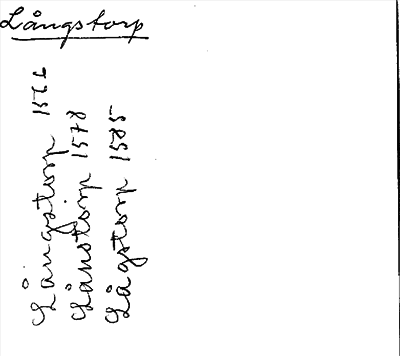 Långstorp
Långstorp 1566
Lånstorp 1578
Lågstorp 1585